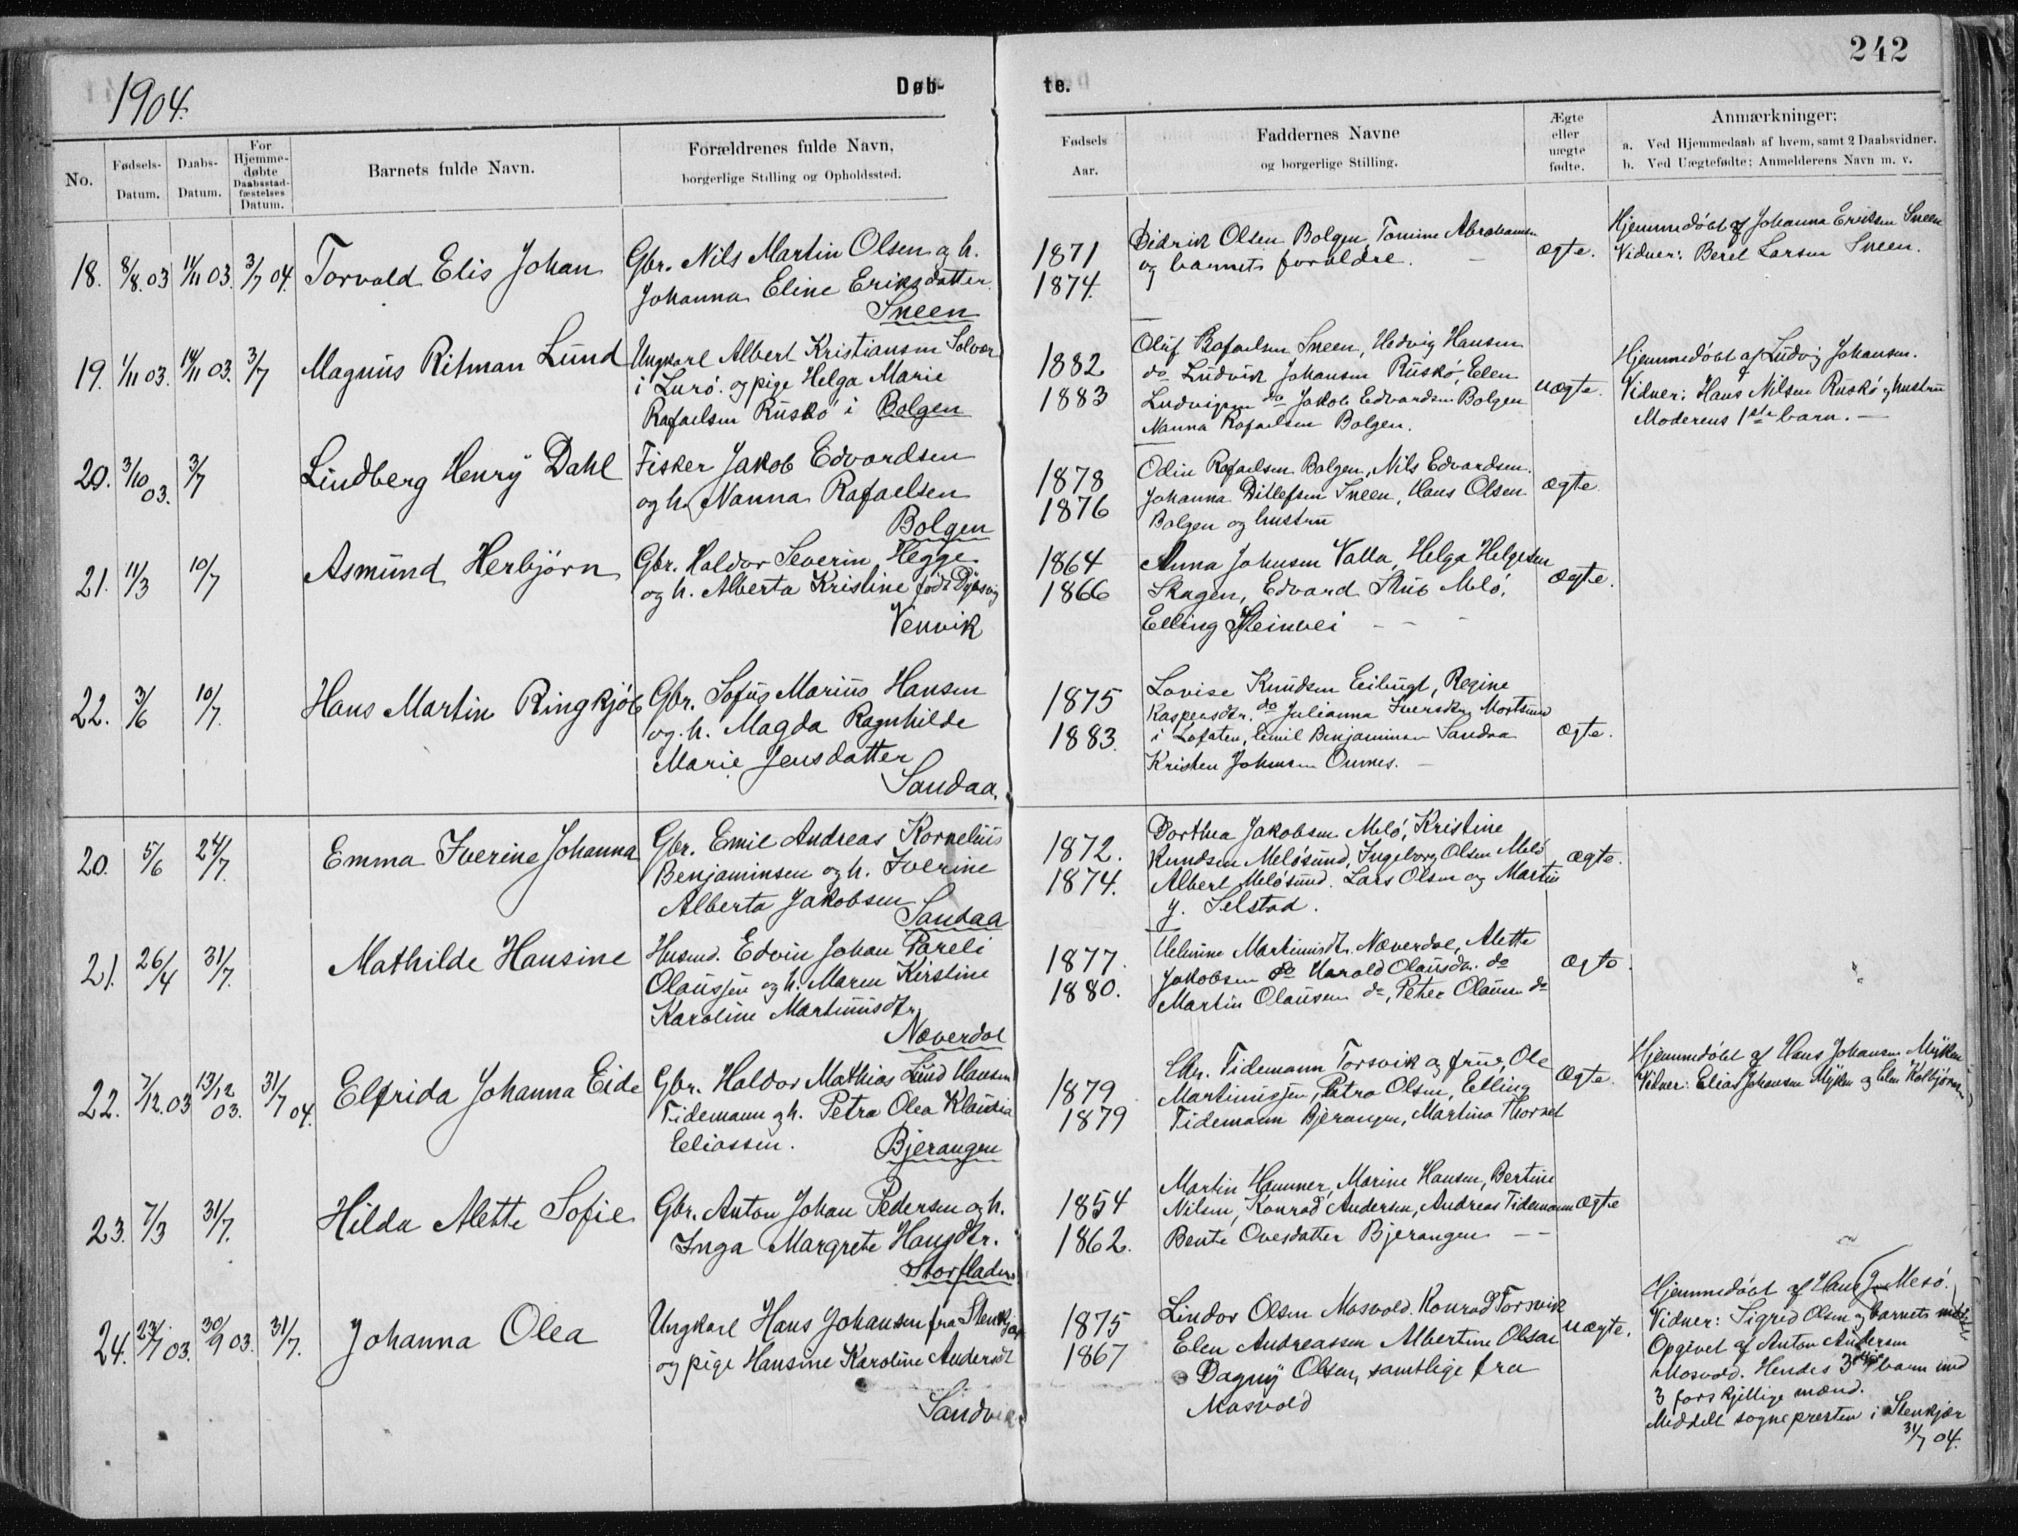 1904.
Døb-
te.
242
No.
Fødsels-
Datum.
Daabs-
Datum.
For
Hjemme-
døbte
Daabsstad-
fæstelses
Datum.
Barnets fulde Navn.
Forældrenes fulde Navn,
borgerlige Stilling og Opholdssted.
Fødsels
Aar.
Faddernes Navne
og borgerlige Stilling.
Ægte
eller
uægte
fødte.
Anmærkninger:
a. Ved Hjemmedaab af hvem, samt 2 Daabsvidner.
b. Ved Uægtefødte: Anmelderens Navn m. v.
18. 8/8.03 11/11 03. 3/7 04. Torvald Elis Johan
Gbr. Nils Martin Olsen og h.
Johanna Eline Eriksdatter.
Sneen
1871
1874.
Didrik Olsen Bolgen, Tomine Abrahamsen
og barnets forældre. —
ægte.
Hjemmedöbt af Johanna Eriksen Sneen
Vidner: Beret Larsen Sneen.
19. 1/11 03. 14/11 03. 3/7 Magnus Ritman Lund
Ungkarl Albert Kristiansen Solvær
i Lurö. og pige Helga Marie
Rafaelsen Ruskö i Bolgen
1882
1883
Oluf Rafaelsen Sneen, Hedvig Hansen
do Ludvik Johansen Ruskö, Elen
Ludvigsen do Jakob Edvardsen Bolgen
Nanna Rafaelsen Bolgen.
uægte.
Hjemmedöbt af Ludvig Johansen.
Vidner: Hans Nilsen Ruskö og hustru
Moderens 1ste barn. —
20. 3/10 03. 3/7 Lindberg Henry Dahl
Fisker Jakob Edvardsen
og h. Nanna Rafaelsen
Bolgen
1878
1876
Odin Rafaelsen Bolgen, Nils Edvardsen.
Johanna Ditlefsen Sneen, Hans Olsen
Bolgen og hustru
ægte.
21. 11/3 10/7 Asmund Herbjørn
Gbr. Haldor Severin Hegge
og h. Alberta Kristine født Dybvig
Venvik
1864
1866
Anna Johnsen Valla, Helga Helgesen
Skagen, Edvard Stub Melö,
Elling Steinvei - - -
ægte.
22. 3/6 10/7. Hans Martin Ringkjöb
Gbr. Sofus Marius Hansen
og h. Magda Ragnhilde
Marie Jensdatter
Sandaa.
1875
1883.
Lovise Knudsen Eibugt, Regine
Kaspersdtr. do Julianna Iversdtr. Mortsund
i Lofoten, Emil Benjaminsen Sandaa
Kristen Johnsen Ornes. —
ægte.
20. 5/6 24/7. Emma Iverine Johanna
Gbr. Emil Andreas Kornelius
Benjaminsen og h. Iverine
Alberta Jakobsen
Sandaa
1872.
1874.
Dorthea Jakobsen Melö, Kristine
Knudsen Melösund, Ingeborg Olsen Melö
Albert Melösund. Lars Olsen og Martin
J. Selstad.
ægte.
21. 26/4 31/7. Mathilde Hansine
Husmd. Edvin Johan Pareli
Olaussen og h. Maren Kirstine
Karoline Martinusdtr.
Næverdal
1877.
1880.
Helmine Martinusdtr. Næverdal, Alette
Jakobsen do Harald Olausdtr. do
Martin Olausen do, Peter Olausen do
ægte.
22. 7/12 03 13/12 03. 31/7 04. Elfrida Johanna Eide
Gbr. Haldor Mathias Lund Hansen
Tidemann og h. Petra Olea Klaudia
Eliassen.
Bjerangen
1879
1879
Chr. Tidemann Torsvik og frue, Ole
Martinussen, Petra Olsen, Elling
Tidemann Bjerangen, Martina Thorsel
ægte.
Hjemmedöbt af Hans Johansen Myken
Vidner: Elias Johansen Myken og Elen Kolbjörnsen
23. 7/3 31/7. Hilda Alette Sofie
Gbr. Anton Johan Pedersen og h.
Inga Margrete Hansdtr.
Storfladen
1854
1862.
Martin Hammer, Marine Hansen, Bertine
Nilsen, Konrad Andersen, Andreas Tidemann
Bente Ovesdatter Bjerangen — —
ægte
24. 23/7 03. 30/9 03. 31/7. Johanna Olea
Ungkarl Hans Johansen fra Stenkjær
og pige Hansine Karoline Andersdt
Sandvik
1875
1867
Lindor Olsen Mosvold. Konrad Torsvik
Elen Andreassen Albertine Olsen
Dagny Olsen, samtlige fra
Mosvold
uægte.
Hjemmedöbt af Hans J. Mesö.
Vidner: Sigrid Olsen og barnets moder
Opgivet af Anton Andersen
Mosvold. Hendes 3die barn med
3 forskjellige mænd.
Meddelt sognepresten i Stenkjær
31/7 04.